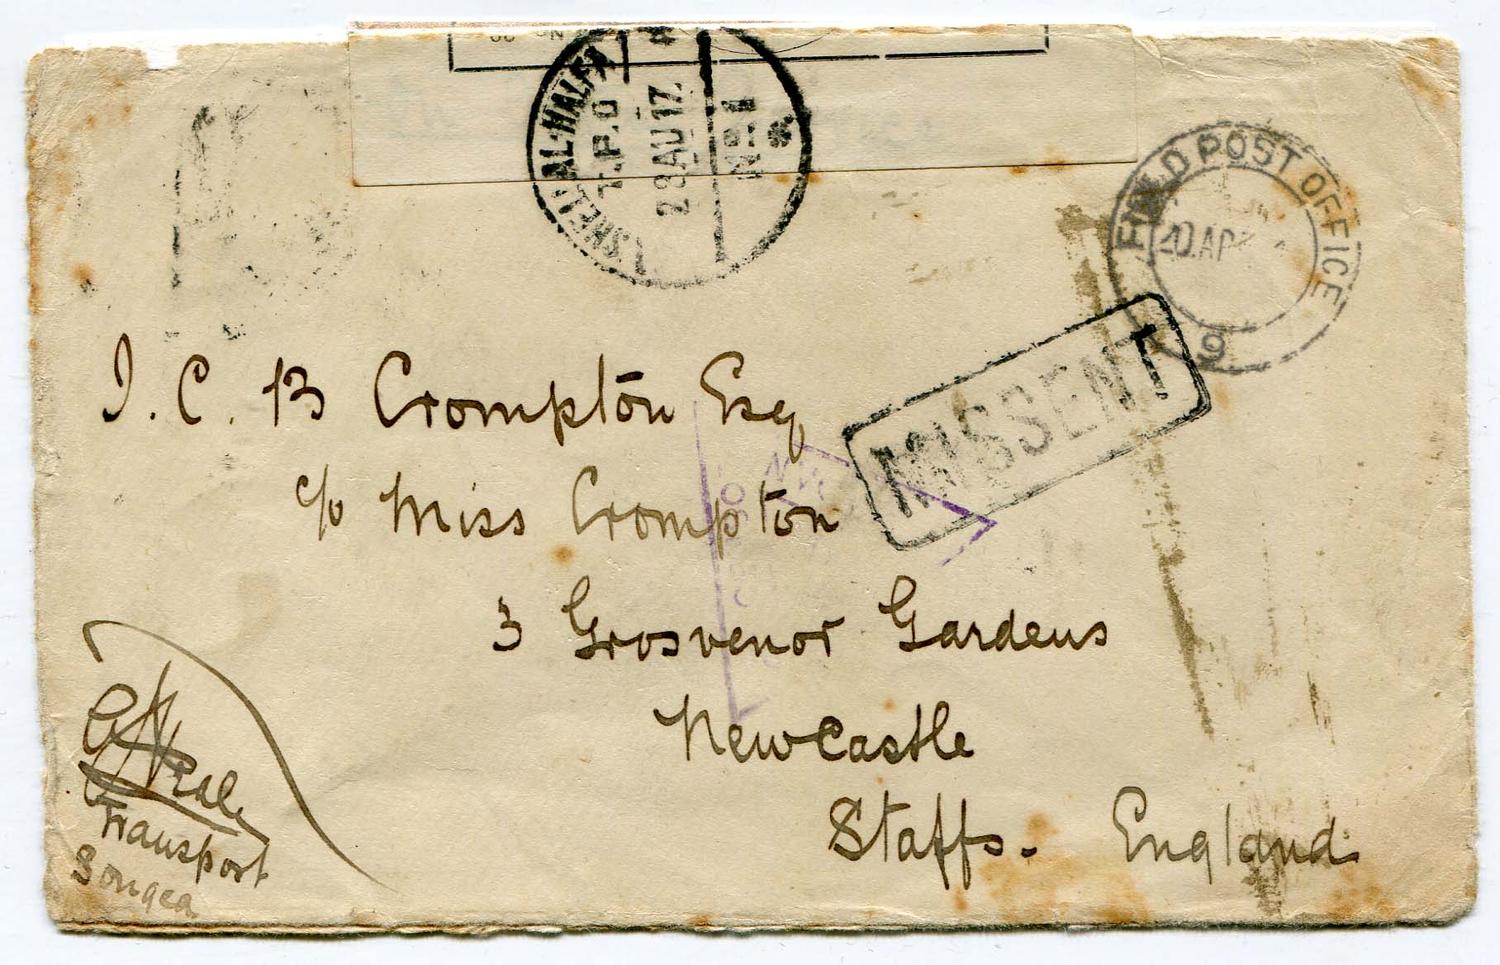 SHELLAL-HALFA
T.P.O
28 AU 17
No 1
FIELD POST OFFICE
20.AP
9
MISSENT
J. C. B Crompton Esq
c/o Miss Crompton
3 Grosvenor Gardens
Newcastle
Staffs. England
Transport
Songea